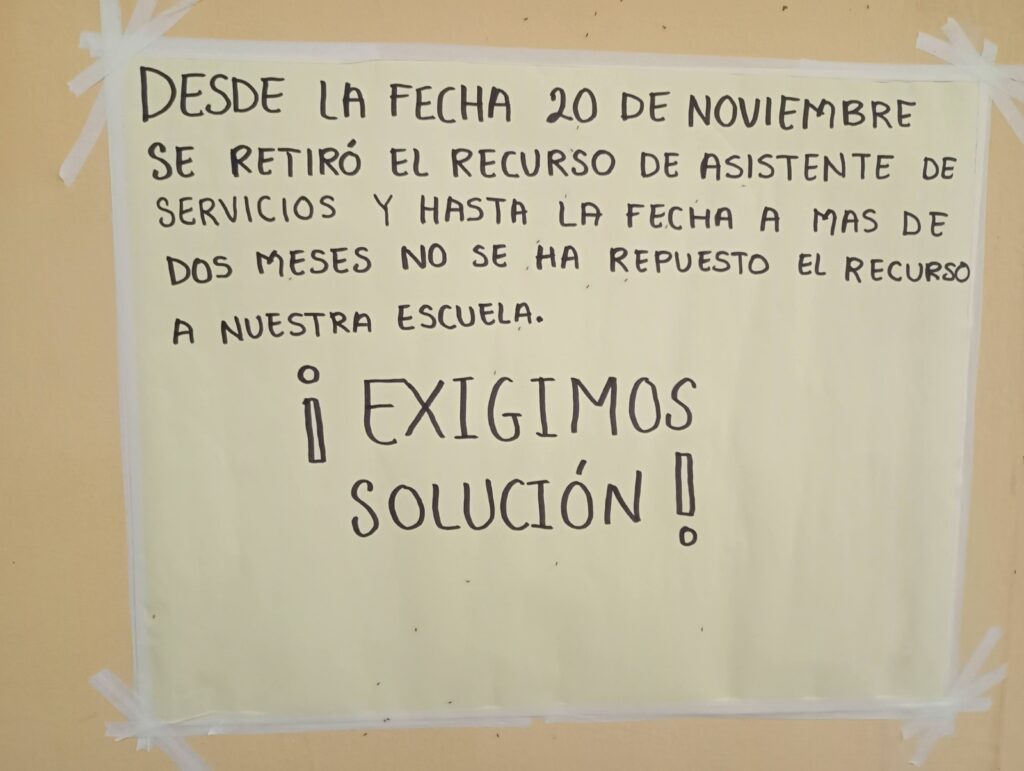 DESDE LA FECHA 20 DE NOVIEMBRE
SE RETIRÓ EL RECURSO DE ASISTENTE DE
SERVICIOS Y HASTA LA FECHA A MAS DE
DOS MESES NO SE HA REPUESTO EL RECURSO
A NUESTRA ESCUELA.
¡EXIGIMOS
SOLUCIÓN!